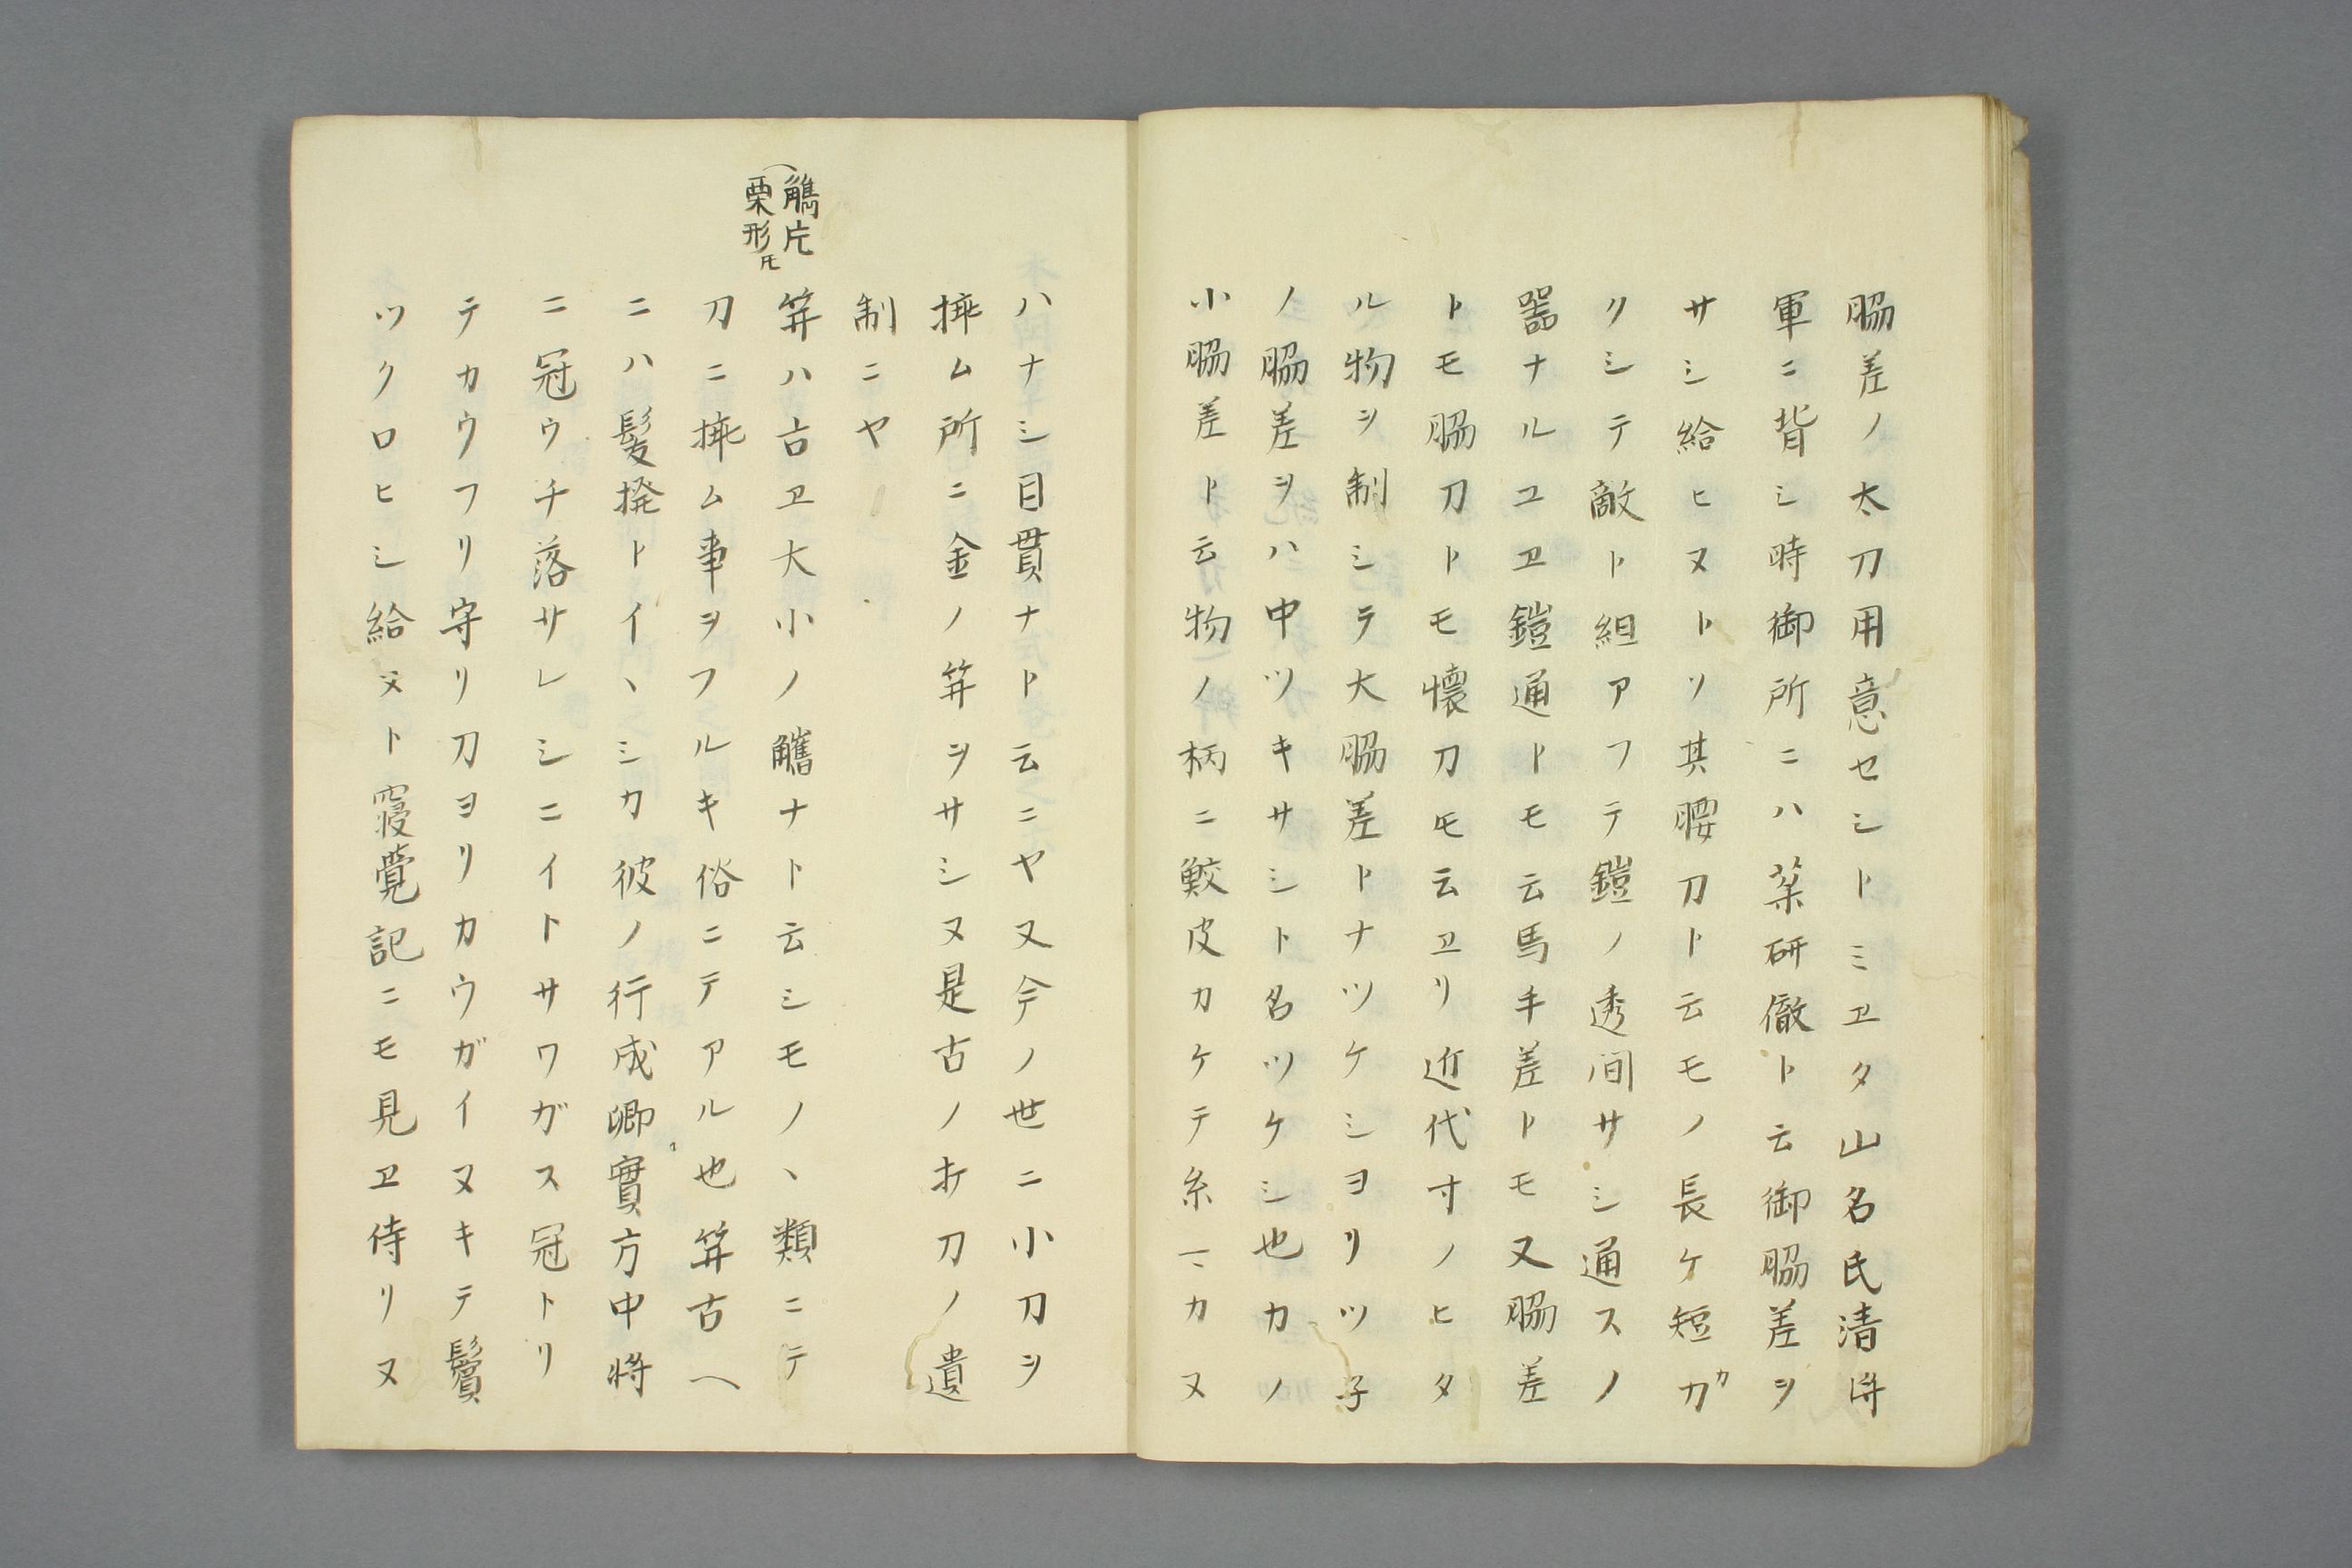 脇差ノ太刀用意セシトミヱタ山名氏清将
軍ニ背シ時御所ニハ薬研徹ト云御脇差ヲ
サシ給ヒヌトソ其腰刀ト云モノ長ケ短カカ
クシテ敵ト組アフテ鎧ノ透间サシ通スノ
噐ナルユヱ鎧通トモ云馬手差トモ又脇差
トモ脇刀トモ懐刀モ云ヱリ近代寸ノヒタ
ル物ヲ制シテ大脇差トナツケシヨリツ子
ノ脇差ヲハ中ツキサシト名ツケシ也カノ
小脇差ト云物ノ柄ニ鮫皮カケテ糸ニテカヌ
ハナシ目貫ナト云ニヤ又今ノ世ニ小刀ヲ
挿ム所ニ金ノ笄ヲサシヌ是古ノ打刀ノ遺
制ニヤ
觿片
栗形モ
笄ハ古ヱ大小ノ觿ナト云シモノヽ類ニテ
刀ニ挿ム事ヲフルキ俗ニテアル也笄古ヘ
ニハ髪撥トイヽシカ彼ノ行成卿實方中将
ニ冠ウチ落サレシニイトサワガス冠トリ
テカウフリ守リ刀ヨリカウガイヌキテ鬢
ツクロヒシ給ヌト寝覺記ニモ見ヱ侍リヌ